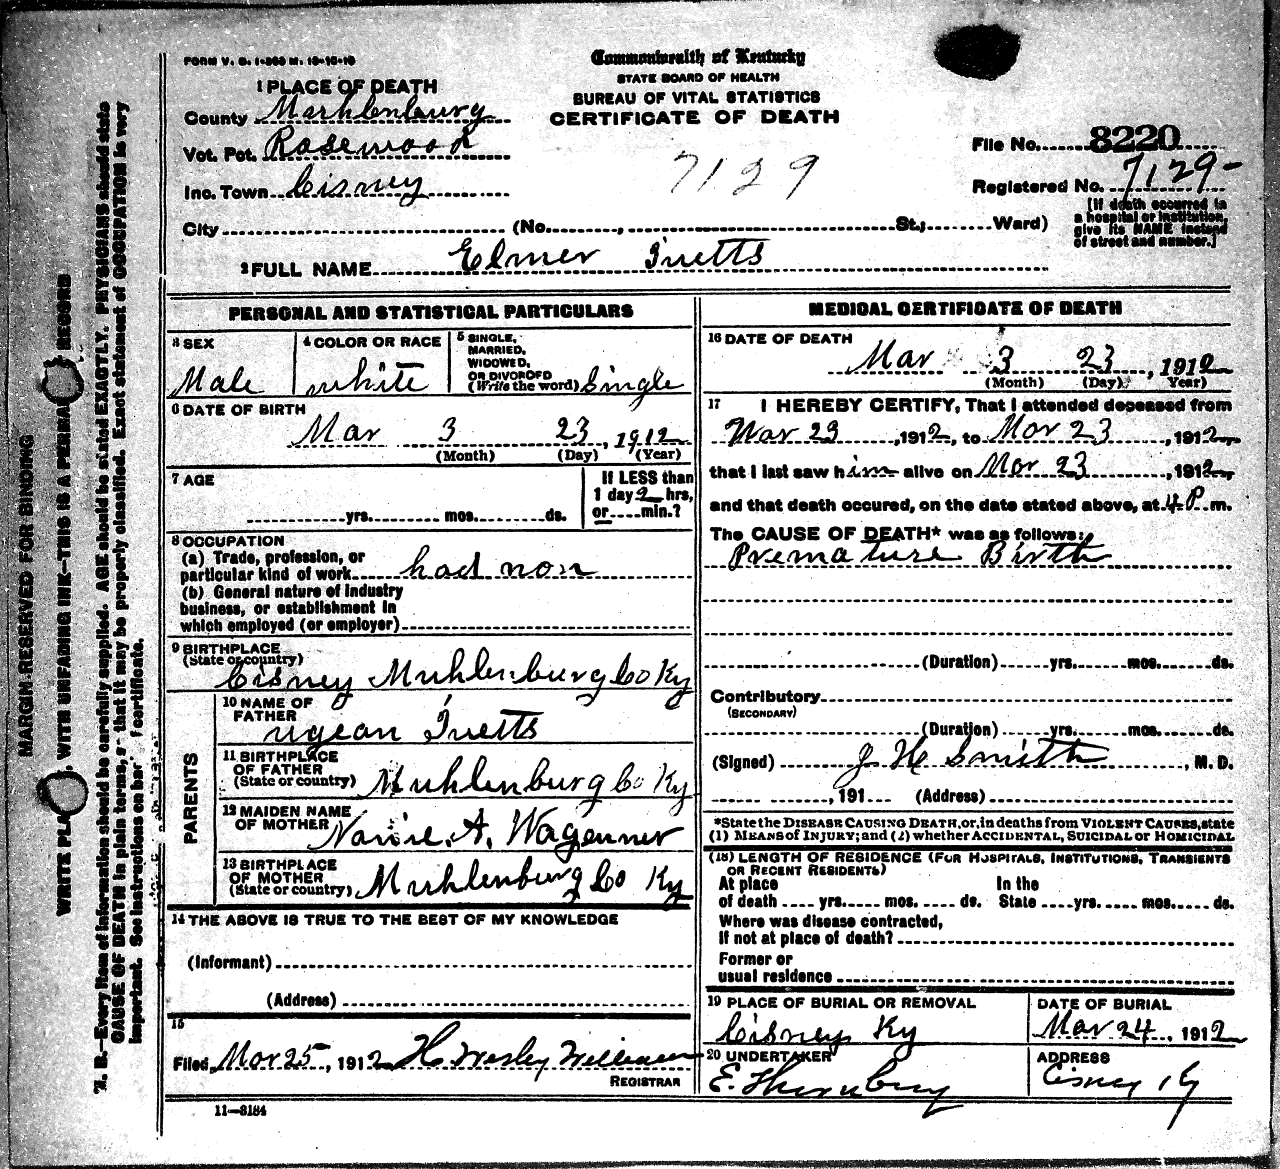 FORM V. S. 1-300 M. 12-10-10
Commonwealth of Kentucky
STATE BOARD OF HEALTH
BUREAU OF VITAL STATISTICS
CERTIFICATE OF DEATH
1 PLACE OF DEATH
County Muhlenburg
Vot. Pct. Rosewood
Inc. Town Cisney
7129
File No. 8220
Registered No. 7129-
[If death occurred in
a hospital or institution,
give its NAME instead
of street and number.]
City (No. , St.; Ward)
2 FULL NAME Elmer Ivetts
PERSONAL AND STATISTICAL PARTICULARS
3 SEX
Male
4 COLOR OR RACE
white
5 SINGLE,
MARRIED,
WIDOWED,
OR DIVORCED
(Write the word) Single
6 DATE OF BIRTH
Mar 3 23, 1912
(Month) (Day) (Year)
7 AGE
yrs. mos. ds.
If LESS than
1 day 2 hrs,
or min.?
8 OCCUPATION
(a) Trade, profession, or
particular kind of work had non
(b) General nature of industry
business, or establishment in
which employed (or employer)
9 BIRTHPLACE
(State or country)
Cisney Muhlenburg Co Ky
PARENTS
10 NAME OF
FATHER
ugean Ivetts
11 BIRTHPLACE
OF FATHER
(State or country) Muhlenburg Co Ky
12 MAIDEN NAME
OF MOTHER Nannie. A. Wagenner
13 BIRTHPLACE
OF MOTHER
(State or country) Muhlenburg Co Ky
14 THE ABOVE IS TRUE TO THE BEST OF MY KNOWLEDGE
(Informant)
(Address)
15
Filed Mar 25, 1912 H. Wesley Williams
REGISTRAR
11-3184
MEDICAL CERTIFICATE OF DEATH
16 DATE OF DEATH
Mar 3 23, 1912
(Month) (Day) Year)
17 I HEREBY CERTIFY, That I attended deceased from
Mar 23, 1912, to Mar 23, 1912,
that I last saw him alive on Mar 23, 1912,
and that death occured, on the date stated above, at 4 P. m.
The CAUSE OF DEATH* was as follows:
Premature Birth
(Duration) yrs. mos. ds.
Contributory
(SECONDARY)
(Duration) yrs. mos. ds.
(Signed) J H Smith, M. D.
, 191 (Address)
*State the DISEASE CAUSING DEATH, or, in deaths from VIOLENT CAUSES, state
(1) MEANS of INJURY; and (2) whether ACCIDENTAL, SUICIDAL or HOMICIDAL
(18) LENGTH OF RESIDENCE (FOR HOSPITALS, INSTITUTIONS, TRANSIENTS
OR RECENT RESIDENTS)
At place In the
of death yrs. mos. ds. State yrs. mos. ds.
Where was disease contracted,
If not at place of death?
Former or
usual residence
19 PLACE OF BURIAL OR REMOVAL
Cisney Ky
DATE OF BURIAL
Mar 24, 1912
20 UNDERTAKER
E. Thornbury
ADDRESS
Cisney Ky
MARGIN RESERVED FOR BINDING
WRITE PLA , WITH UNFADING INK—THIS IS A PERMA RECORD
N. B.—Every item of information should be carefully supplied. AGE should be stated EXACTLY. PHYSICIANS should state
CAUSE OF DEATH in plain terms, so that it may be properly classified. Exact statement of OCCUPATION is very
important. See instructions on back certificate.